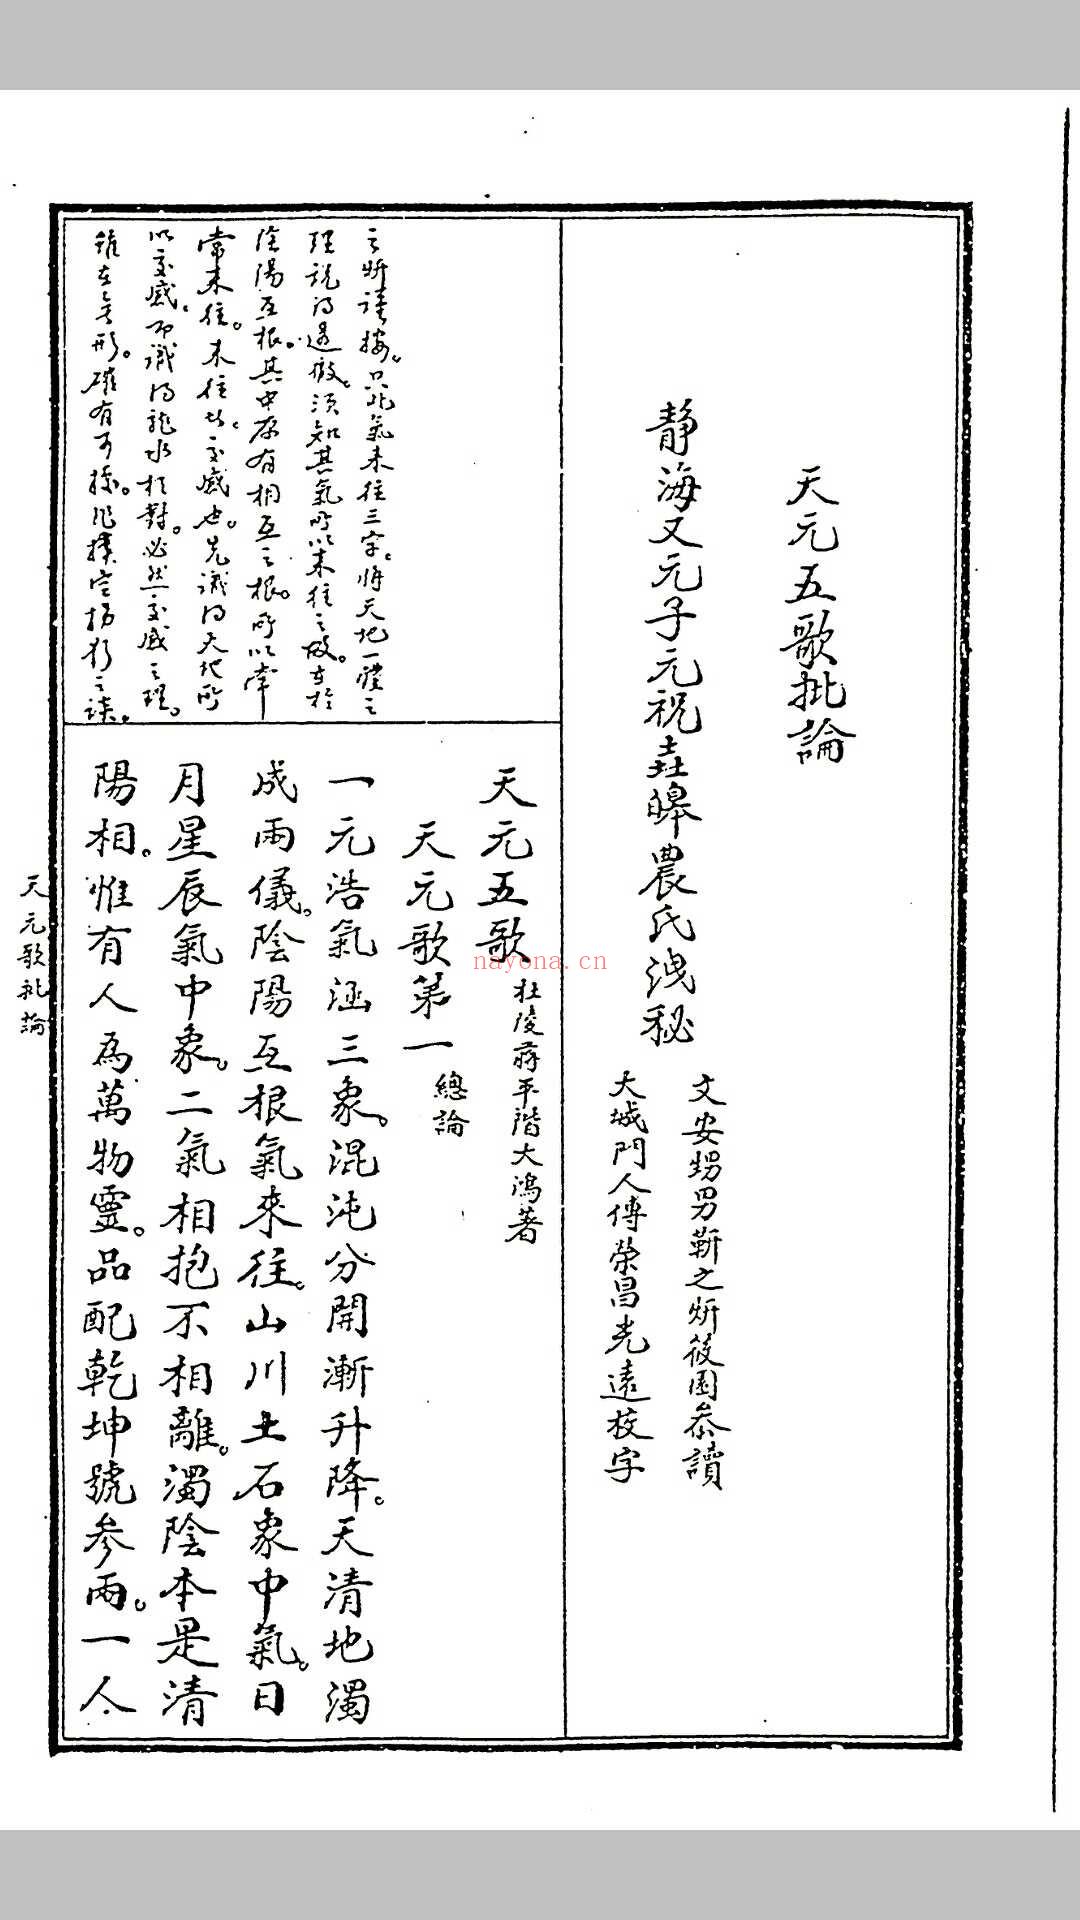 天元五歌批論
靜海又元子元祝垚皞農氏洩秘
文安甥男靳之炘筱園參讀
大城門人傅榮昌光遠校字
之炘謹按。只此氣来往三字。將天地一體之
理說得透徹。須知其氣所以来往之故。在於
陰陽互根。其中存有相互之根。所以常
常来往。来往者。交感也。先識得天地所
以交感。而識得龍水相對。必然交感之理。
雖在無形。確有可據。非撲空捕影之談。
天元五歌 杜陵蔣平階大鴻著
天元歌第一 總論
一元浩氣涵三象。混沌分開漸升降。天清地濁
成兩儀。陰陽互根氣來往。山川土石象中氣。日
月星辰氣中象。二氣相抱不相離。濁陰本是清
陽相。惟有人為萬物靈。品配乾坤號參兩。一人
天元歌批論
nayona.cn